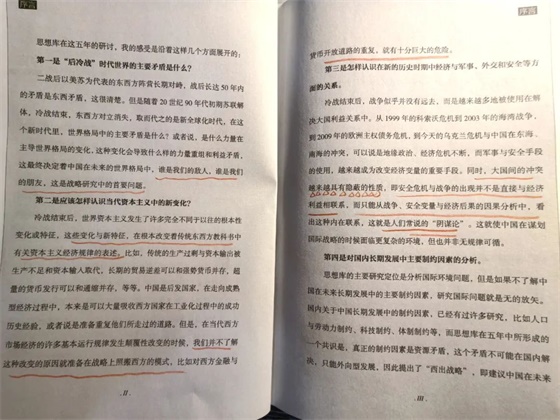 序言
思想库在这五年的研讨，我的感受是沿着这样几个方面展开的：
第一是“后冷战”时代世界的主要矛盾是什么？
二战后以美苏为代表的东西方阵营长期对峙，战后长达 50 年内
的矛盾是东西矛盾，这很清楚。但是随着 20 世纪 90 年代初期苏联解
体，冷战结束，东西方对立消失，取而代之的是新全球化时代，在这
个新时代里，世界格局中的主要矛盾是什么？或者说，是什么力量在
主导世界格局的变化，这种变化会导致什么样的力量重组和利益矛盾，
这最终决定着中国在未来的世界格局中，谁是我们的敌人，谁是我们
的朋友，这是战略研究中的首要问题。
第二是应该怎样认识当代资本主义中的新变化？
冷战结束后，世界资本主义发生了许多完全不同于以往的根本性
变化或特征，这些变化与新特征，在根本改变着传统东西方教科书中
有关资本主义经济规律的表述。比如，传统的生产过剩与资本输出被
生产不足和资本输入取代，长期的贸易逆差可以和强势货币并存，超
量的货币发行可以和通缩并存，等等。中国是后发国家，在走向成熟
型经济过程中，本来是可以大量吸收西方国家在工业化过程中的成功
历史经验，或者说是准备重复他们所走过的道路。但是，在当代西方
市场经济的许多基本运行规律发生颠覆性改变的时候，我们并不了解
这种改变的原因就准备在战略上照搬西方的模式，比如对西方金融与
· II ·
序言
货币开放道路的重复，就有十分巨大的危险。
第三是怎样认识在新的历史时期中经济与军事、外交和安全等方
面的关系。
冷战结束后，战争似乎并没有远去，而是越来越多地被使用在解
决大国利益关系中。从 1999 年的科索沃危机到 2003 年的海湾战争，
到 2009 年的欧洲主权债务危机，到今天的乌克兰危机与中国在东海、
南海的冲突，可以说是地缘政治、经济危机不断，而军事与安全手段
的使用，越来越成为改变经济变量的重要手段。同时，大国间的冲突
越来越具有隐蔽的性质，即安全危机与战争的出现并不是直接与经济
利益相联系，而只能从战争、安全变量与经济后果的因果分析中，看
出这种内在联系，这就是人们常说的“阴谋论”。这就使中国在谋划
国际战略的时候面临更复杂的环境，但也并非无规律可循。
第四是对国内长期发展中主要制约因素的分析。
思想库的主要研究定位是分析国际环境问题，但是如果不了解中
国在未来长期发展中的主要制约因素，研究国际问题就是无的放矢。
国内关于中国长期发展中的制约因素，已经有过许多研究，比如人口
与劳动力制约、科技制约、体制制约等，而思想库在五年中所形成的
一个共识是，真正的制约因素是资源矛盾，这个矛盾不可能在国内解
决，只能外向型发展，因此提出了“西出战略”，即建议中国在未来
· III ·